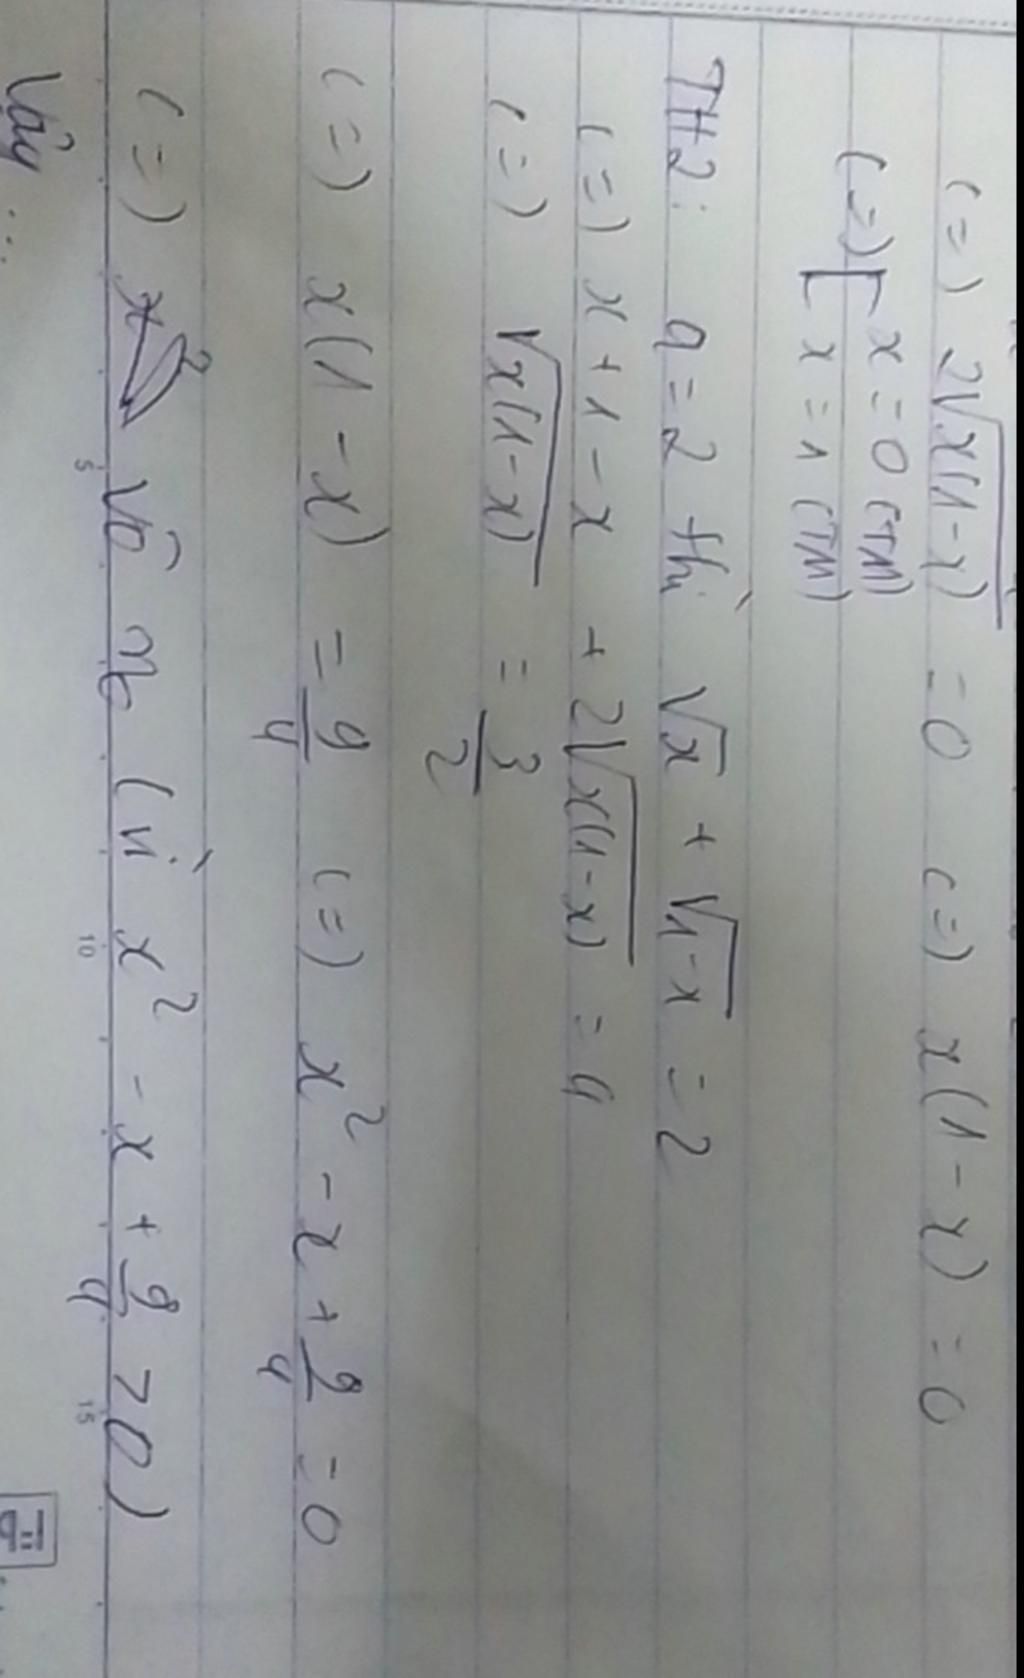 (=) 2√x(1-x) = 0 (=) x(1-x) = 0
(=) [ x = 0 (TM)
x = 1 (TM)
TH2: a = 2 thì √x + √1-x = 2
(=) x + 1 - x + 2√x(1-x) = 4
(=) √x(1-x) = 3/2
(=) x(1-x) = 9/4 (=) x² - x + 9/4 = 0
(=) vô no (vì x² - x + 9/4 > 0)
Vậy ...
5 10 15